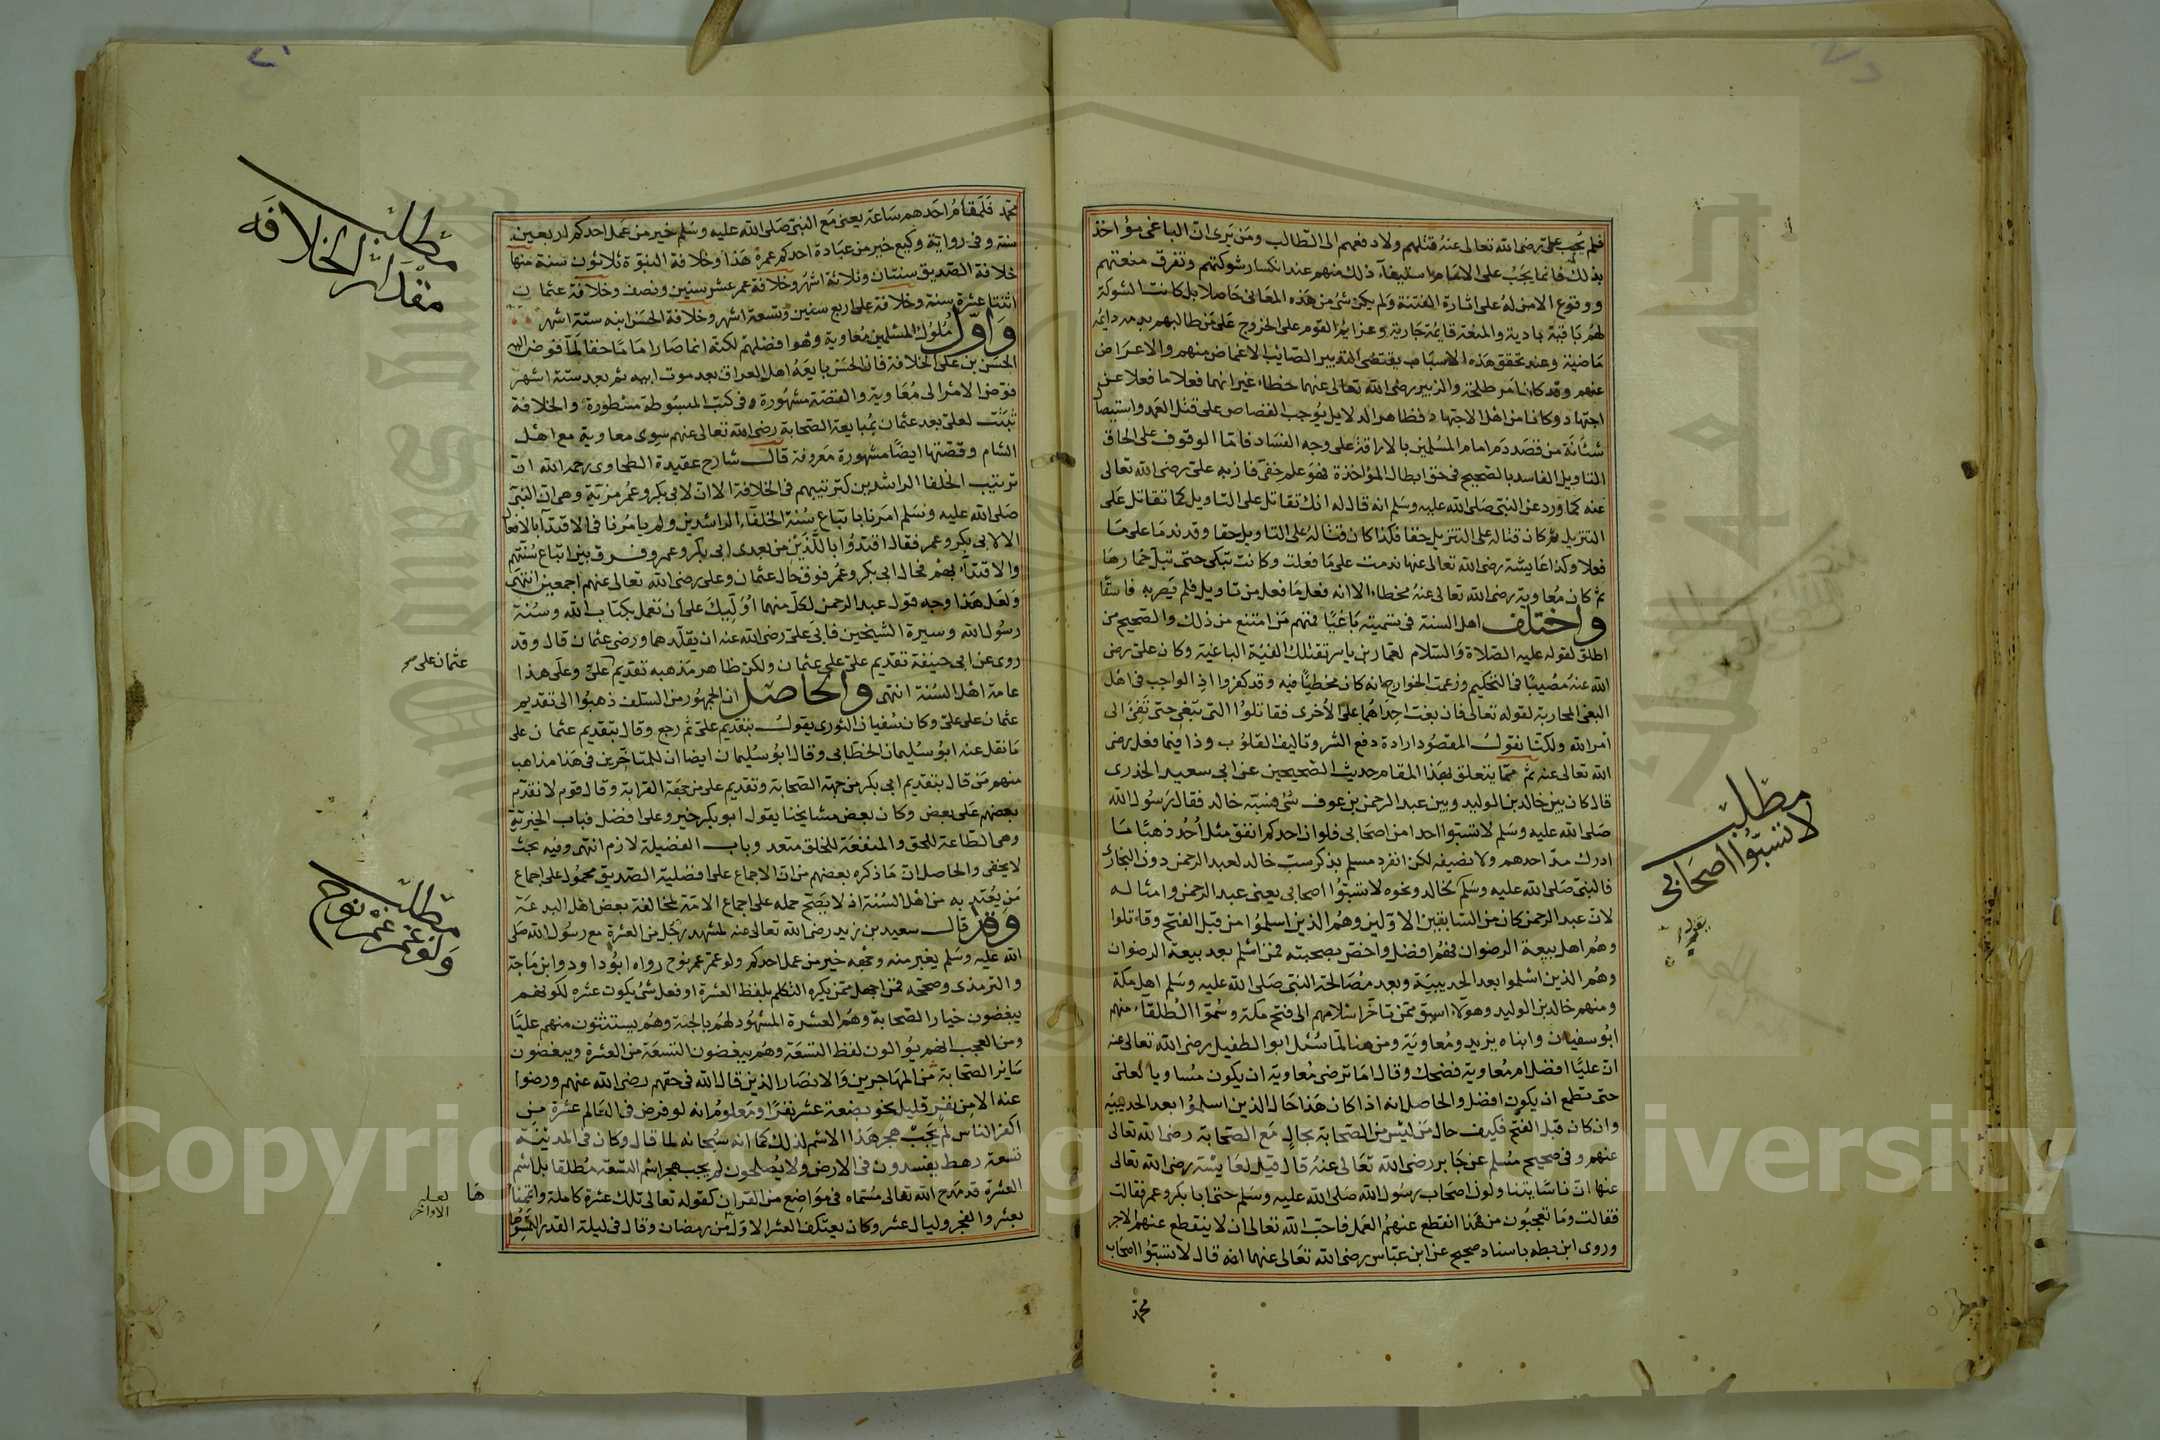 فلم يُجِب علىّ رضى الله تعالى عنهُ قتلهم ولا دفعهم الى الطالب ومَن يَرى ان الباغى مؤاخذ
بذلك فانما يجبُ على الامَام استيفآء ذلك منهم عند انكسار شوكتهم وتفرق منعتهم
ووقوع الامن لهُ على اثارة الفتنة وَلم يكن شئ من هَذه المعَانى حَاصلا بل كانت الشوكة
لهُم بَاقية بادية والمنعَة قايمُة جَارية وعزايمُ القوم على الخروج عَلى مَن طالبهم بدمه دايمُة
مَاضية وعند تحقق هَذه الاسبَاب يقتضى التدبير الصَائب الاغماض منهم والاعرَاض
عنهم وقد كان امر طلحَة والزبير رضى الله تعالى عنهما خطاء غير انهما فعلا ما فعلا عن
اجتهاد وكانا من اهْل الاجتهاد فظاهر الدلايل يوجب القصاص على قتل العمد واستيصال
شئانة من قصَد دَم امام المسْلمين بالاراقة على وجه الفسَاد فامّا الوقوف على الحاق
التاويل الفاسد بالصَحيح فى حق ابطال المؤاخذة فهوَ علم خفى فاز به علىّ رضى الله تعالى
عنه كما وَرد عن النبىّ صَلى الله عليه وسَلم انه قال له انك تقاتل على التاويل كما تقاتل عَلى
التنزيل ثم كان قتاله على التنزيل حقا فكذا كان قتالهُ على التاويل حقا وقد ندمَا على مَا
فعلا وكذا عَايشة رضى الله تعالى عنها ندمت على مَا فعلت وكانت تبكى حتى تبلّ خمارهَا
ثم كان مُعاوية رضى الله تعالى عنهُ مخطاء الا انه فعل مَا فعل من تاويل فلم يَصِر به فاسقًا
واختلف اهل السنة فى تسميته بَاغيًا فمنهم مَن امتنع من ذلك والصَحيح من
اطلق لقوله عليه الصّلاة وَالسّلام لعمّار بن ياسر تقتلك الفئة الباغية وكان علىّ رضى
الله عنهُ مُصيبًا فى التحكيم وزعمت الخوارج انه كان مخطيًا فيه وقد كفروا اذ الواجب فى اهْل
البغى المحاربة لقوله تعالى فان بغت احدَاهُما على الأخرى فقاتلوُا التى تبغى حتى تَفئَ الى
أمر الله ولكنّا نقول المقصُود ارادة دفع الشر وتاليف القلوُب وذا فيما فعل رضى
الله تعالى عنه ثم ممّا يتعلق بهَذا المقام حديث الصَّحيحين عن ابى سعيد الخدرى
قال كان بين خالد بن الوليد وبين عبد الرحمن بن عوف شئ فسَبّه خالد فقال رَسول الله
صَلى الله عليه وسَلم لا تسبوا احدا من اصحَابى فلو ان احدكم انفق مثل أحُد ذهبًا مَا
ادرك مدّ احدهم ولا نصيفه لكن انفرد مسلم بذكر سبّ خالد لعبد الرحمن دون البخارى
فالنبىّ صَلى الله عليه وسَلم يخالد ونحوه لا تسبوُا اصحابى يعنى عبد الرحمن وامثاله
لان عبد الرحمن كان من السّابقين الاوّلين وهُم الذين اسلموُا من قبل الفتح وقاتلوا
وهُم اهل بيعة الرضوان فهُم افضل واخصّ بصحبته ممن اسْلم بعد بيعة الرضوان
وهُم الذين اسْلموا بعد الحديبيّة وبعد مُصَالحة النبىّ صَلى الله عليه وسَلم اهل مكة
ومنهم خالد بن الوليد وهؤلآء اسبق ممّن تأخَّر اسْلامهم الى فتح مكة وسُمّوا الطلقاء منهم
ابوُ سفيان وابناه يزيد ومُعاويَة ومن هنا لمّا سُئل ابو الطفيل رضى الله تعالى عنه
انّ عليًّا افضل ام مُعاوية فضحك وقال امَا ترضى مُعاوية ان يكون مُساويا لعلىّ
حتى تطمع ان يكون افضل والحاصل انه اذا كان هَذا حَال الذين اسلموُا بعد الحديبيّة
وان كان قبل الفتح فكيف حال مَن ليْسَ من الصّحابة بحَال مَع الصّحابة رضى الله تعالى
عنهم وفى صحيح مُسْلم عن جَابر رضى الله تعَالى عنهُ قال قيل لعَايشة رضى الله تعالى
عنها انّ ناسًا يتناولون اصحَاب رسوُل الله صَلى الله عليه وسَلم حتى ابا بكر وعمر فقالت
فقالت ومَا تعجبُون من هَذا انقطع عنهمُ العمَل فاحبّ الله تعالى ان لا ينقطع عنهم الاجر
وروى ابن بطه باسناد صَحيح عن ابن عبّاس رضى الله تعَالى عنهما انه قال لا تسبّوُا اصحَاب
محمّد
مطلب
لا تسبّوا اصحَابى
محمّد فلمَقامُ احَدهم سَاعة يعنى مَع النبىّ صَلى الله عليه وسَلم خير من عَمل احدكم اربعين
سنة وفى روايَة وكيع خير من عبَادة احدكم عمرهُ هَذا وخلافة النبوّة ثلاثون سَنة منها
خلافة الصّديق سنتان وثلاثة اشهُر وخلافة عمر عشر سنين ونصف وخلافة عثمان
اثنتا عشرة سنة وخلافة على اربع سَنين وتسعة اشهر وخلافة الحسَن ابنه ستة اشهر
وَاوّل مُلوُك المسْلمين مُعاوية وهُو افضلهم لكنّه انما صَار امَامًا حقا لمّا فوّض اليه
الحسَن بن على الخلافة فان الحسَن بايعَهُ اهل العراق بعد موت ابيه ثم بعد ستة اشهر
فوّض الامْر الى مُعَاوية والقصّة مشهُورة وفى كتب المبسُوطة مسْطورة والخلافة
ثبتَت لعلىّ بعد عثمان بمُبايعة الصّحابة رضى الله تعالى عنهم سِوى معاوية مع اهْل
الشام وقصّتها ايضًا مشهُورة معروفة قال شارح عقيدة الطحاوى رحمه الله انّ
ترتيب الخلفا الراشدين كترتيبهم فى الخلافة الا انّ لابى بكر وعمُر مزيّة وهى ان النبىّ
صَلى الله عليه وسَلم امرنا باتباع سُنة الخلفآء الراشدين ولم يامُرنا فى الاقتدآء بالافعال
الا لابى بكر وعمر فقال اقتدُوا باللّذَيْن من بعدى ابى بكر وعمر وفرق بين اتباع سُنّتهم
والاقتدآء بهمْ فحال ابى بكر وعُمر فوق حَال عثمان وعلى رضى الله تعالى عنهم اجمعين انتهى
وَلعَل هَذا وجه قول عبد الرحمن لكلّ منهما اوُلّيك على ان تعمل بكتاب الله وسُنة
رسُول الله وسيرة الشيخين فابَى علىّ رضى الله عنه ان يقلّدهما ورضى عثمان قال وقد
روى عن ابى حنيفة تقديم علىّ على عثمان ولكن ظاهر مذهبه تقديم علىّ وعلى هذا
عامة اهْل السُنة انتهى والحاصل ان الجمهُور من السّلف ذهبُوا الى تقديم
عثمان على علىّ وكان سُفيان الثورى يقول بتقديم علىّ ثم رجع وقال بتقديم عثمان على
مَا نقل عنه ابوُ سُليمان الخطّابى وقال ابوُ سُليمان ايضا ان للمتاخّرين فى هَذا مذاهب
منهم مَن قال بتقديم ابى بكر من جهة الصّحابة وتقديم على من جهَة القرَابة وقال قوم لا نقدّم
بعضهم عَلى بعض وكان بعض مشايخنا يقول ابو بكر خير وعلى افضل فباب الخيريّة
وهى الطاعة للحق والمنفعَة للخلق متعد وباب الفضيلة لازم انتهى وفيه بحث
لا يخفى والحاصل انّ مَا ذكره بعضهم من انّ الاجماع على افضلية الصّديق محمُول على اجماع
مَن يُعتدّ به من اهْل السُنة اذ لا يصَحّ حمله على اجماع الامّة لمخالفة بعض اهل البدعَة
وَقَد قال سعيد بن زيد رضى الله تعالى عنه لمشهد رجُل من العشرة مع رسُول الله صَلى
الله عليه وسَلم يغبر منه وجهه خير من عمل احدكم ولو عمّر عمر نوح رواه ابوُ داود وابن مَاجة
والترمذى وصححّه فمَن اجهل ممّن يكره التكلم بلفظ العشرة او فعل شئ يكون عشره لكونهم
يبغضون خيار الصّحابة وهُم العشرة المشهُود لهُم بالجنة وهُم يستثنون منهم عليًّا
ومن العجب انهم يُوالون لفظ التسعَة وهُم يبغضون التسعَة من العشرة ويبغضون
سَاير الصّحابة من المهَاجرين وَالانصَار الذين قال الله فى حقهم رضى الله عنهم ورضوا
عنه الا من نفر قليل نحو بضعة عشر نفرًا ومَعلومُ انه لو فرض فى العَالم عشرة من
اكفر الناس لم يَجبْ هجر هَذا الاسْم لذلك كما انه سُبحانه لما قال وكان فى المدينة
تسعَة رهط يفسدون فى الارض ولا يُصلحون لم يجب هجر اسْم التسعَة مُطلقا بل اسْم
العشرة قد مَدح الله تعالى مُسَمّاه فى مَوَاضِع من القرآن كقوله تعالى تلك عشرة كاملة واتممنا
بعشر والفجر وليال عشر وكان يعتكف العشر الاوّل من رمضان وقال فى ليلة القدر التمسُوها
مطلب
مقدار الخلافَة
عثمان على صح
مطلب
وَلو عمّر عمُر نوح
هَا
لعله
الاواخر
Copyright © King Saud University